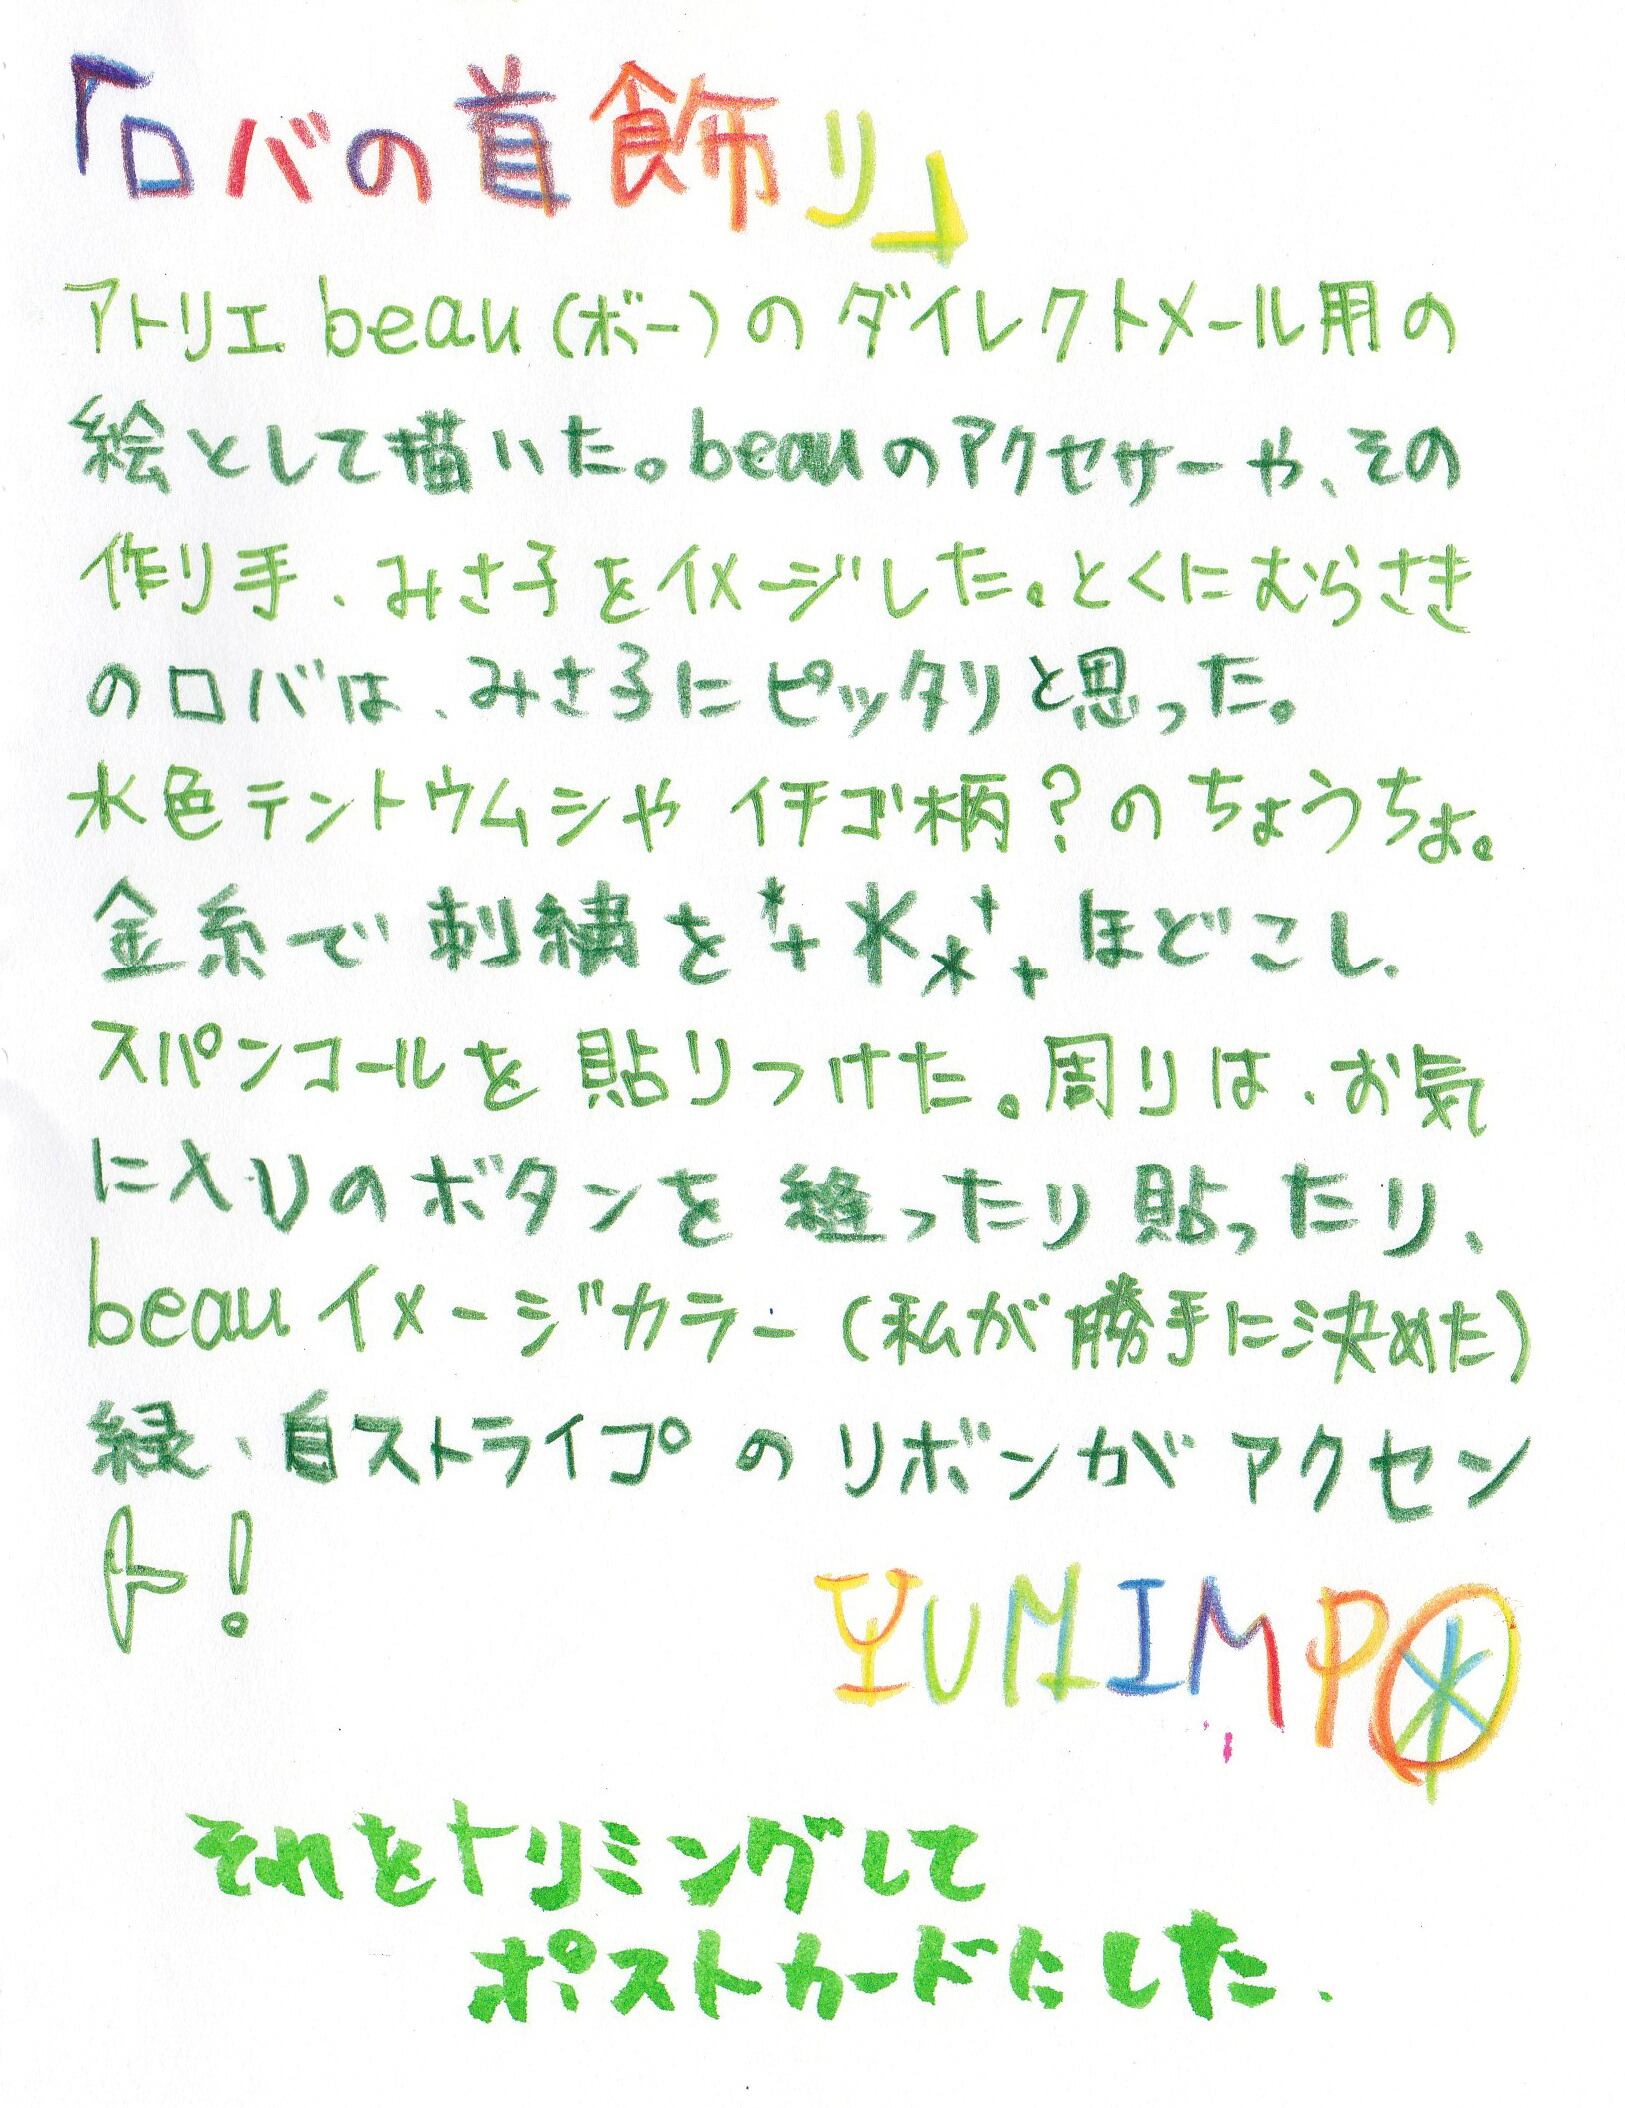 「ロバの首飾り」
アトリエ beau (ボー)の ダイレクトメール用の
絵として描いた。beauのアクセサーや、その
作り手、みさ子をイメージした。とくにむらさき
のロバは、みさ子にピッタリと思った。
水色テントウムシや イチゴ柄?の ちょうちょ。
金糸で 刺繍を ほどこし、
スパンコールを 貼りつけた。周りは、お気
に入りのボタンを 縫ったり 貼ったり、
beau イメージカラー (私が 勝手に決めた)
緑、白ストライプの リボンが アクセン
ト!
YUMIMPO
それをトリミングして
ポストカードにした.